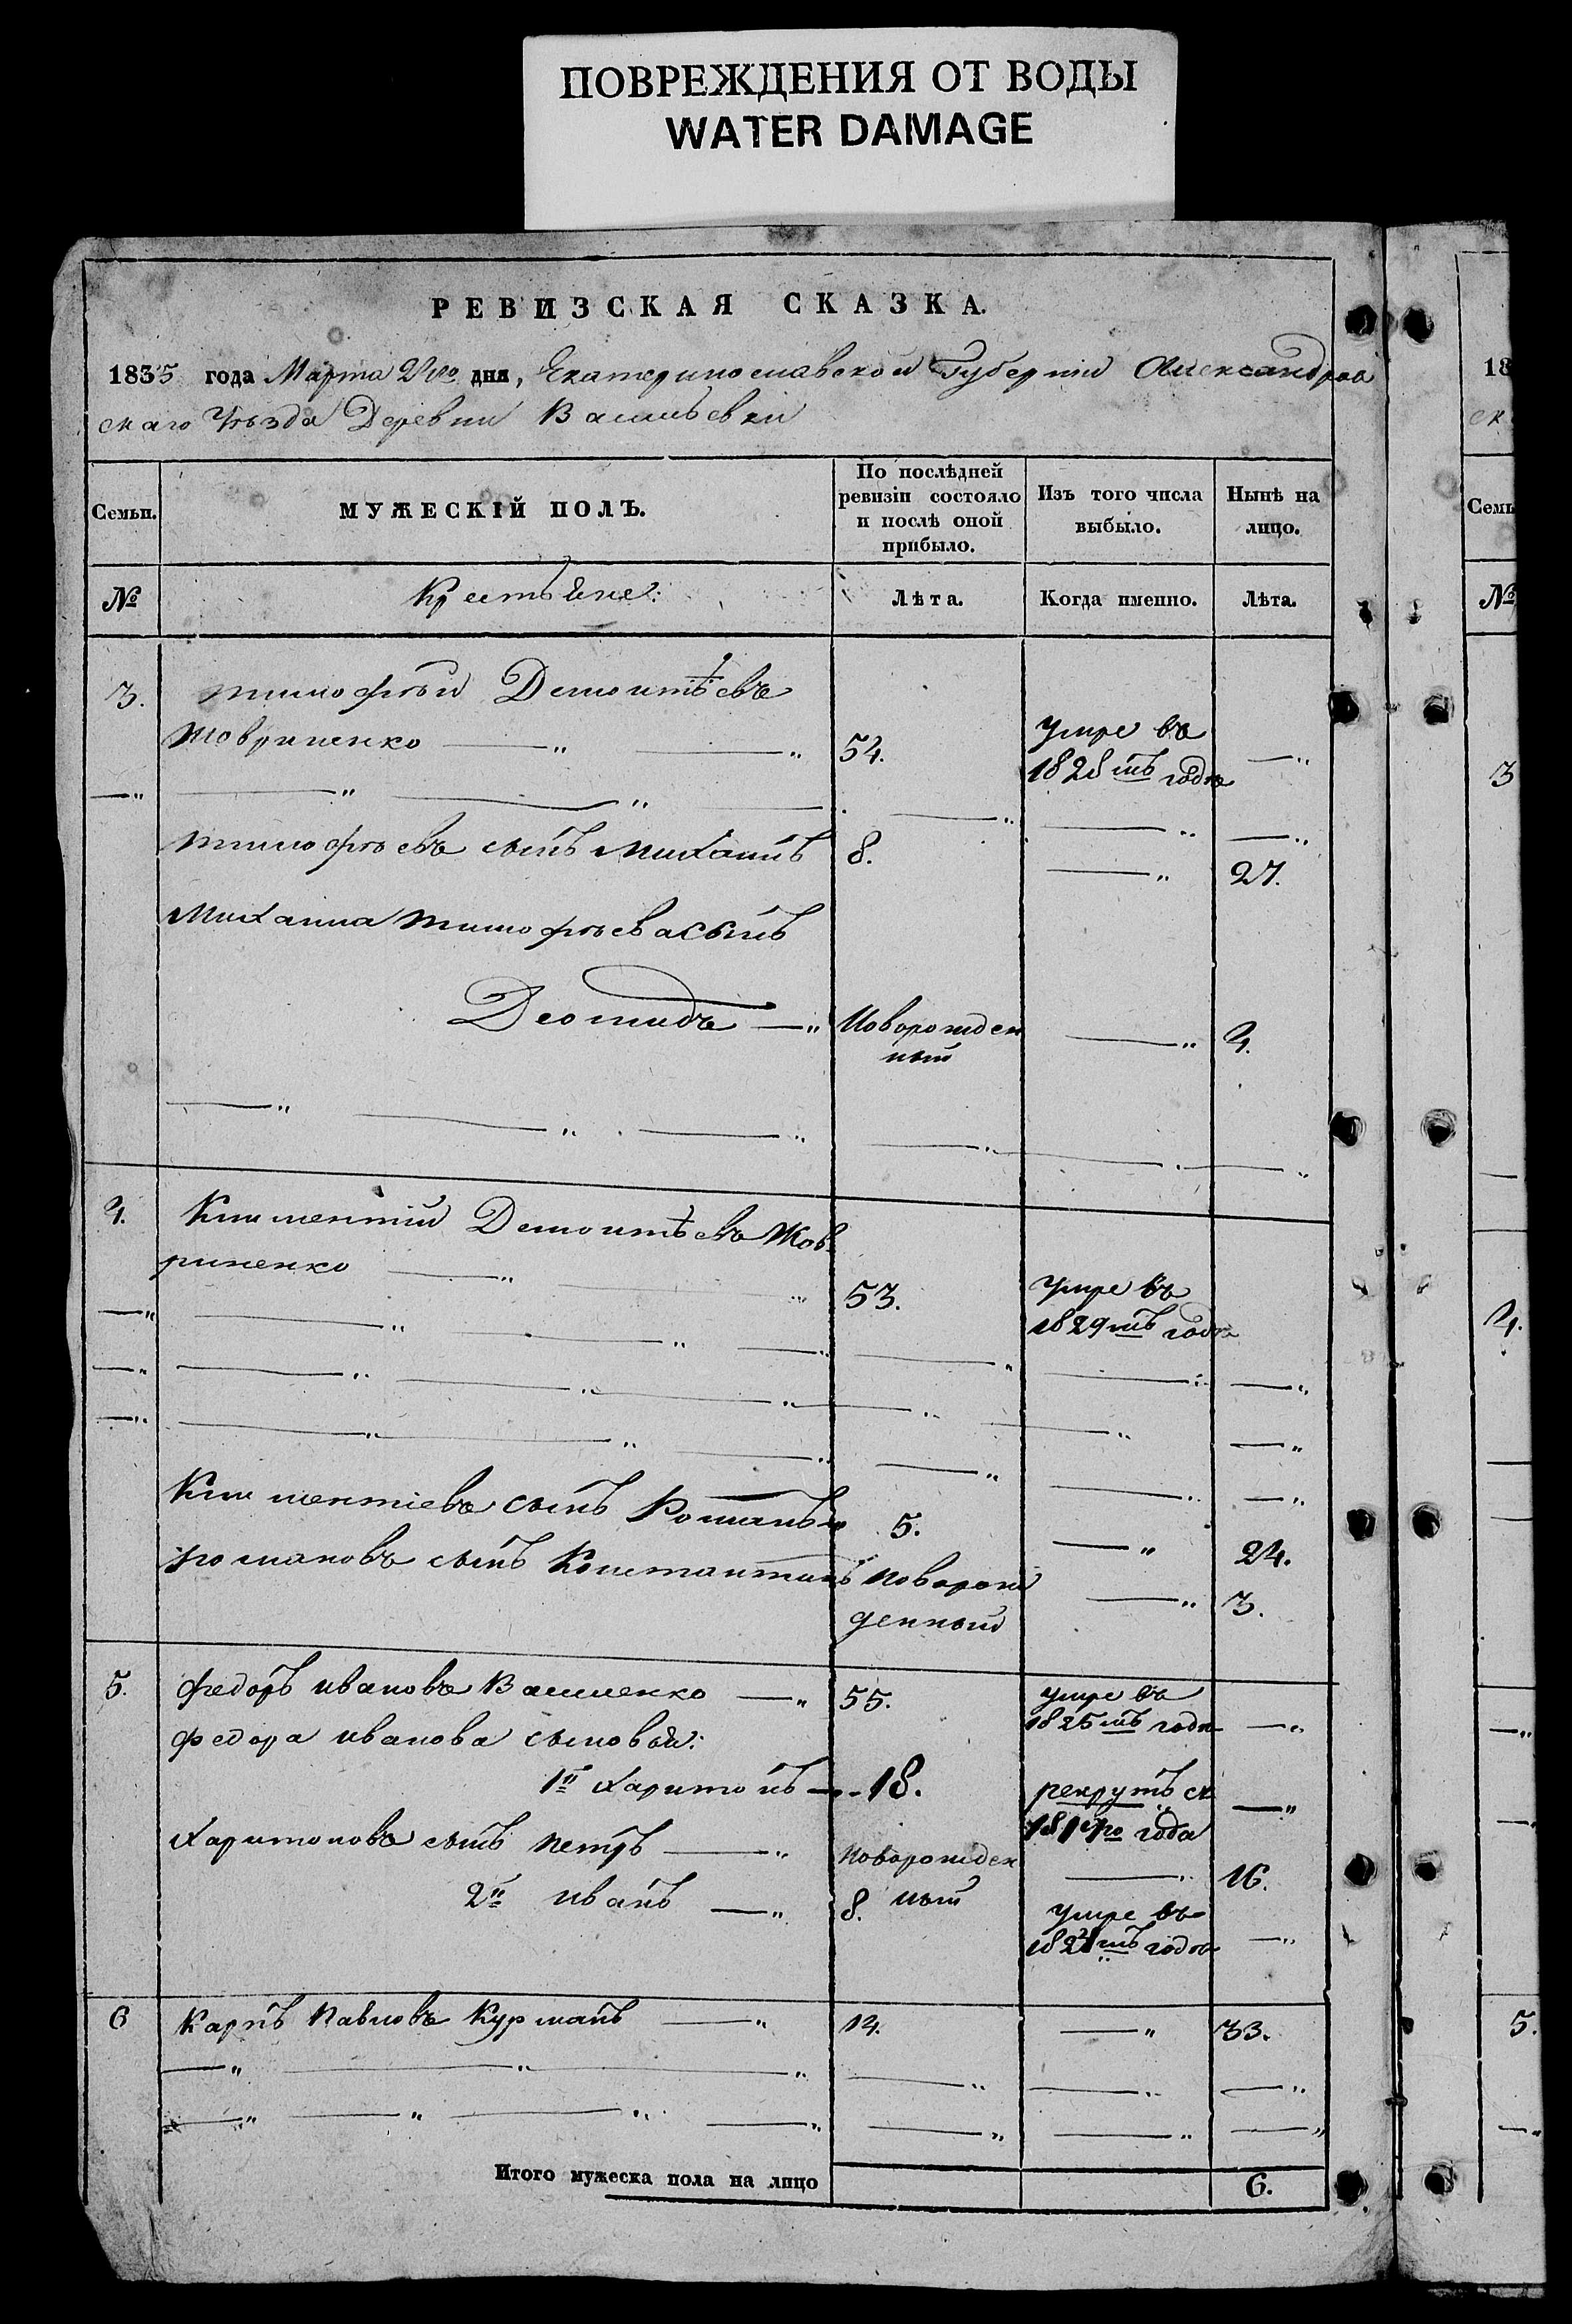 ПОВРЕЖДЕНИЯ ОТ ВОДЫ
WATER DAMAGE
РЕВИЗСКАЯ СКАЗКА.
1835 года Марта 2го дня, Екатеринославской Губерніи Александров
скаго Уѣзда Деревни Васильевки
Семьи.
МУЖЕСКІЙ ПОЛЪ.
По послѣдней ревизіи состояло и послѣ оной прибыло.
Изъ того числа выбыло.
Нынѣ на лицо.
№
Крестьяне:
Лѣта.
Когда именно.
Лѣта.
3.
Тимофѣй
54.
умре въ
1828мъ годѣ
Тимофѣевъ сынъ Михаилъ 8. 27.
Михаила Тимофѣева сынъ
Деомидъ Новорожден
ный
4.
4.
Климентій
53.
умре въ
1829мъ годѣ
Климентіевъ сынъ Романъ 5. 24.
Романовъ сынъ Константинъ новорож
денный
3.
5. Федоръ Ивановъ Василенко 55. умре въ
1825мъ годѣ
Федора Иванова сыновья:
1й Харитонъ 18. рекрутъ съ
года
Харитоновъ сынъ Петръ новорожден
ный
16.
2й Иванъ 8. умре въ
годѣ
6 Карпъ Павловъ Курманъ 14. 33.
Итого мужеска пола на лицо 6.
18
ск
Семь
№
3
4.
5.